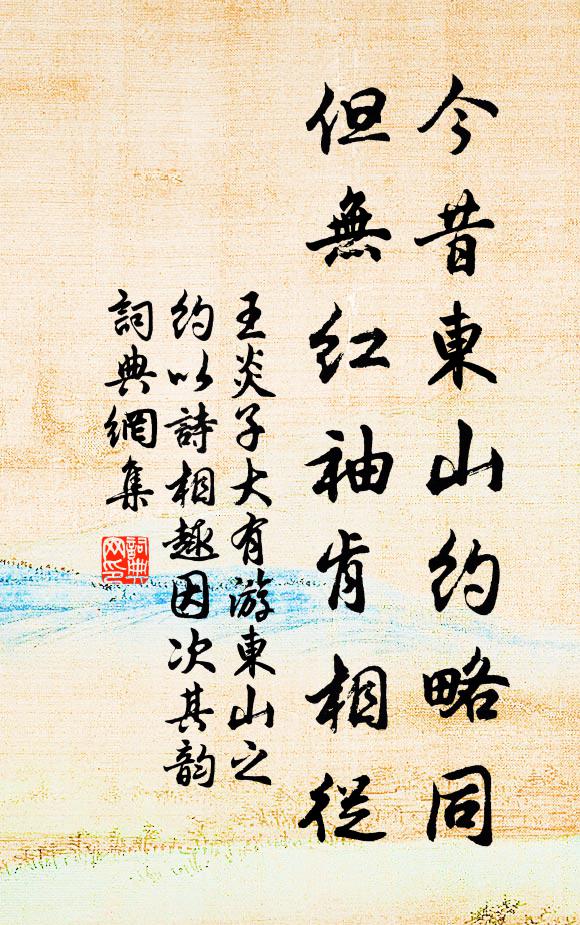 今昔東山約略同
但無紅袖肯相從
王炎子大有游東山之
約以詩相趣因次其韵
詞典網集
詞典
网印